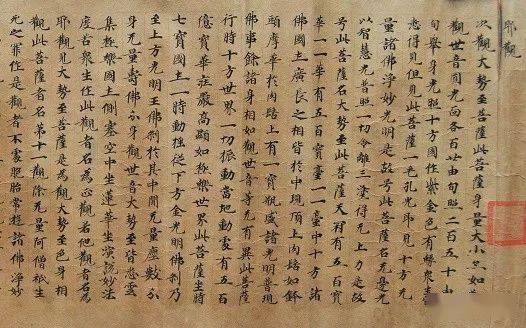 耶觀
次觀大勢至菩薩此菩薩身量大小亦如
觀世音圓光面各百廿由旬照二百五十由
旬舉身光照十方國作紫金色有緣眾生
悉得見但見此菩薩一毛孔光即見十方无
量諸佛淨妙光明是故号此菩薩名无邊光
以智慧光普照一切令離三塗得无上力是故
号此菩薩名大勢至此菩薩天冠有五百寶
華一一華有五百寶臺一一臺中十方諸
佛國土廣長之相皆於中現頂上肉髻如鉢
頭摩華於肉髻上有一寶瓶盛諸光明普現
佛事餘諸身相如觀世音等无有異此菩薩
行時十方世界一切振動當地動處有五百
億寶華莊嚴高顯如極樂世界此菩薩坐時
七寶國土一時動搖從下方金光明佛刹乃
至上方光明王佛刹於其中間无量塵數分
身无量壽佛分身觀世音大勢至皆悉雲
集極樂國土側塞空中坐蓮華座演說妙法
度苦眾生作此觀者名為正觀若他觀者名為
耶觀見大勢至菩薩是為觀大勢至色身相
觀此菩薩者名第十一觀除无量阿僧祇生
死之罪作是觀者不處胞胎常遊諸佛淨妙